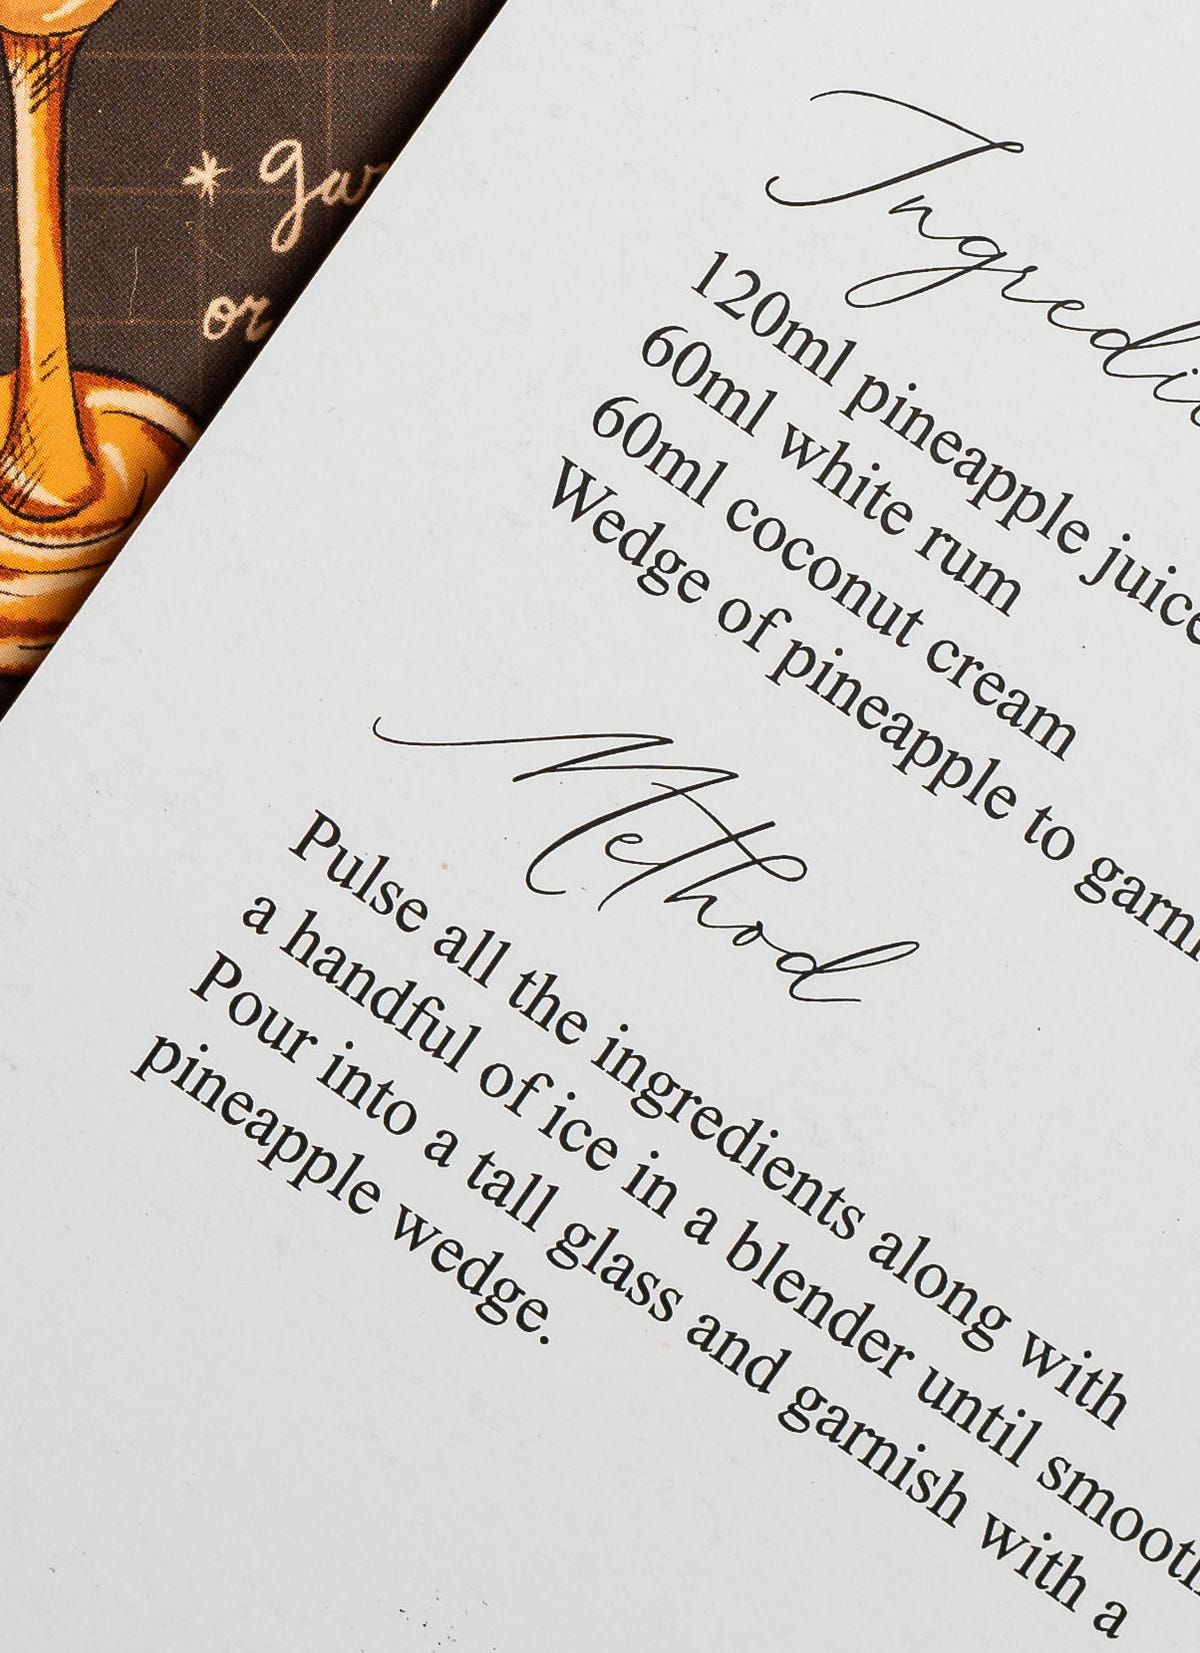 * gar
or
Ingredi
120ml pineapple juice
60ml white rum
60ml coconut cream
Wedge of pineapple to garni
Method
Pulse all the ingredients along with
a handful of ice in a blender until smooth
Pour into a tall glass and garnish with a
pineapple wedge.